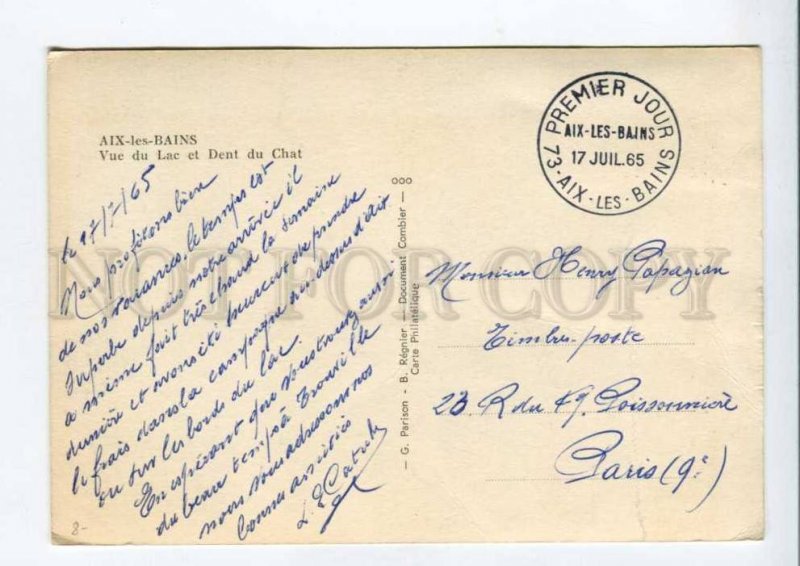 AIX-les-BAINS
Vue du Lac et Dent du Chat
le 17/7/65
Nous profitons bien
de nos vacances, le temps est
superbe depuis notre arrivée il
a même fait très chaud la semaine
dernière et avons été heureux de prendre
le frais dans la campagne au dessus d'Aix
ou sur les bords du lac.
En espérant que vous trouvez aussi
du beau temps à Trouville
nous vous adressons nos
bonnes amitiés
— G. Parison - B. Régnier — Document Combier —
Carte Philatélique
ooo
PREMIER JOUR
AIX-LES-BAINS
17 JUIL.65
73-AIX-LES-BAINS
Monsieur Henry Papazian
Timbres-poste
23 R du Fg Poissonnière
Paris (9e)
8-
NOT FOR COPY